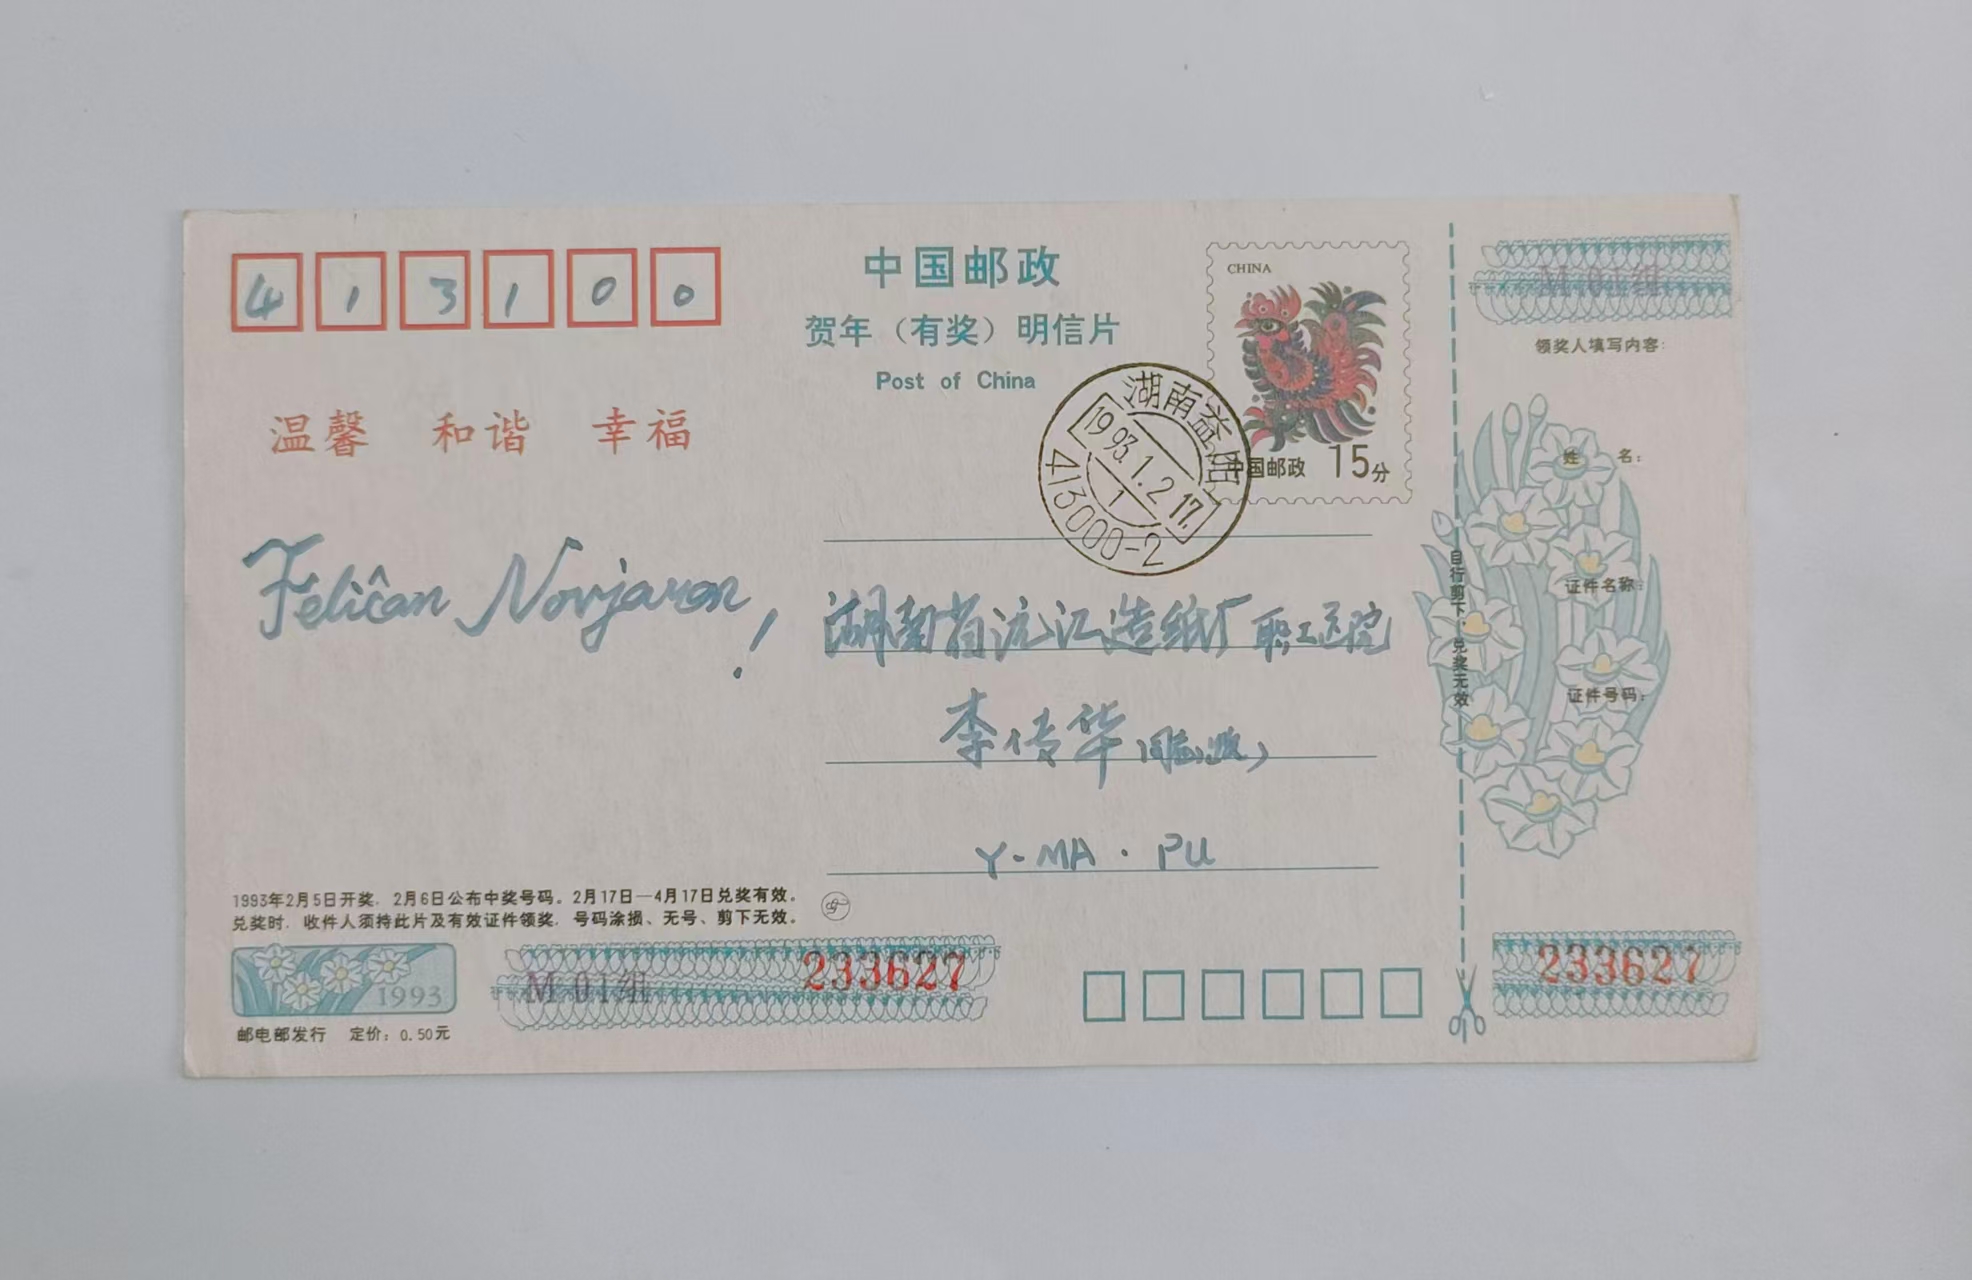 413100
中国邮政
贺年（有奖）明信片
Post of China
CHINA
中国邮政 15分
湖南益阳
1993.1.2.17.
1
413000-2
温馨 和谐 幸福
Feliĉan Novjaron!
湖南省沅江造纸厂职工医院
李传华(同志)收
Y-MA·PU
1993年2月5日开奖，2月6日公布中奖号码。2月17日—4月17日兑奖有效。
兑奖时，收件人须持此片及有效证件领奖，号码涂损、无号、剪下无效。
1993
邮电部发行 定价：0.50元
M 01组 233627
自行剪下，兑奖无效
M 01组
领奖人填写内容：
姓 名：
证件名称：
证件号码：
233627